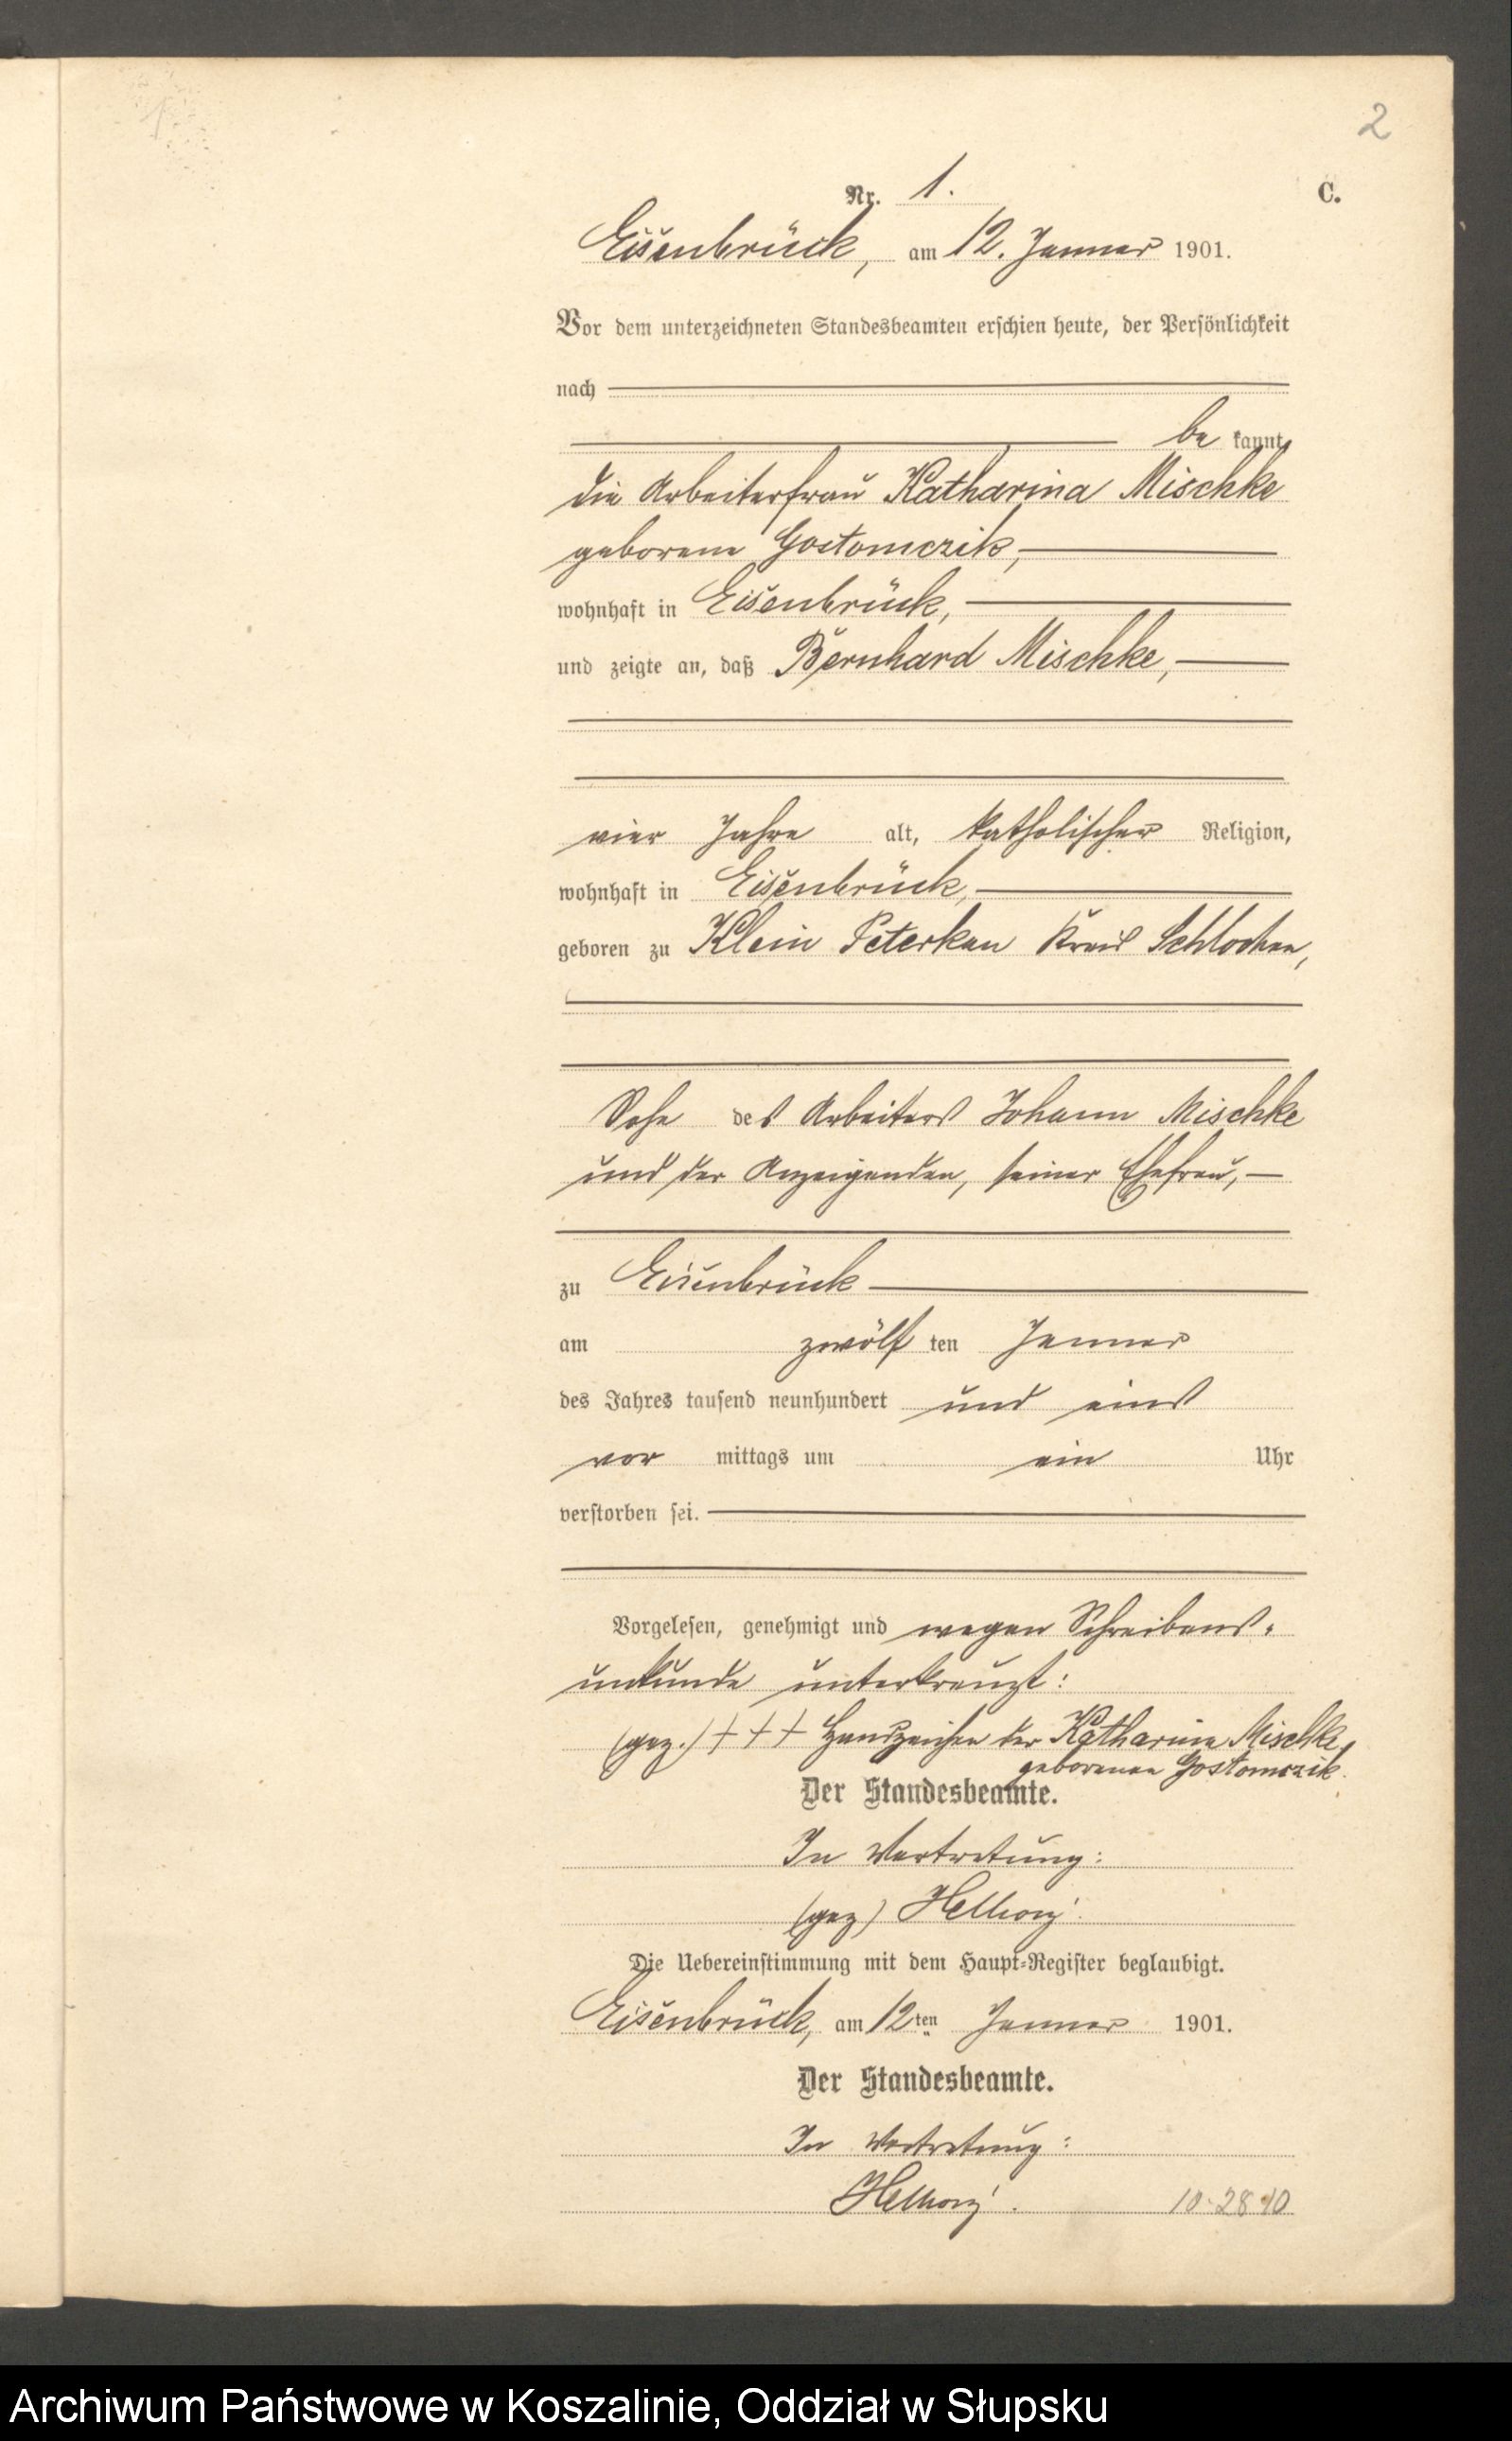 2
Nr. 1.
C.
Eisenbrück, am 12. Januar 1901.
Vor dem unterzeichneten Standesbeamten erschien heute, der Persönlichkeit
nach
be kannt,
die Arbeiterfrau Katharina Mischke
geborene Gostomczik,
wohnhaft in Eisenbrück,
und zeigte an, daß Bernhard Mischke,
vier Jahre alt, katholischer Religion,
wohnhaft in Eisenbrück,
geboren zu Klein Peterkau Kreis Schlochau,
Sohn des Arbeiters Johann Mischke
und der Anzeigenden, seiner Ehefrau,
zu Eisenbrück
am zwölf ten Januar
des Jahres tausend neunhundert und eins
vor mittags um ein Uhr
verstorben sei.
Vorgelesen, genehmigt und wegen Schreibens-
unkunde unterkreuzt:
(gez.) +++ Handzeichen der Katharina Mischke,
geborenen Gostomczik.
Der Standesbeamte.
In Vertretung:
(gez)
Die Uebereinstimmung mit dem Haupt-Register beglaubigt.
Eisenbrück, am 12ten Januar 1901.
Der Standesbeamte.
In Vertretung:
10.28.10
Archiwum Państwowe w Koszalinie, Oddział w Słupsku